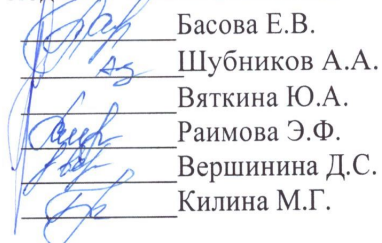 Басова Е.В.
Шубников А.А.
Вяткина Ю.А.
Раимова Э.Ф.
Вершинина Д.С.
Килина М.Г.